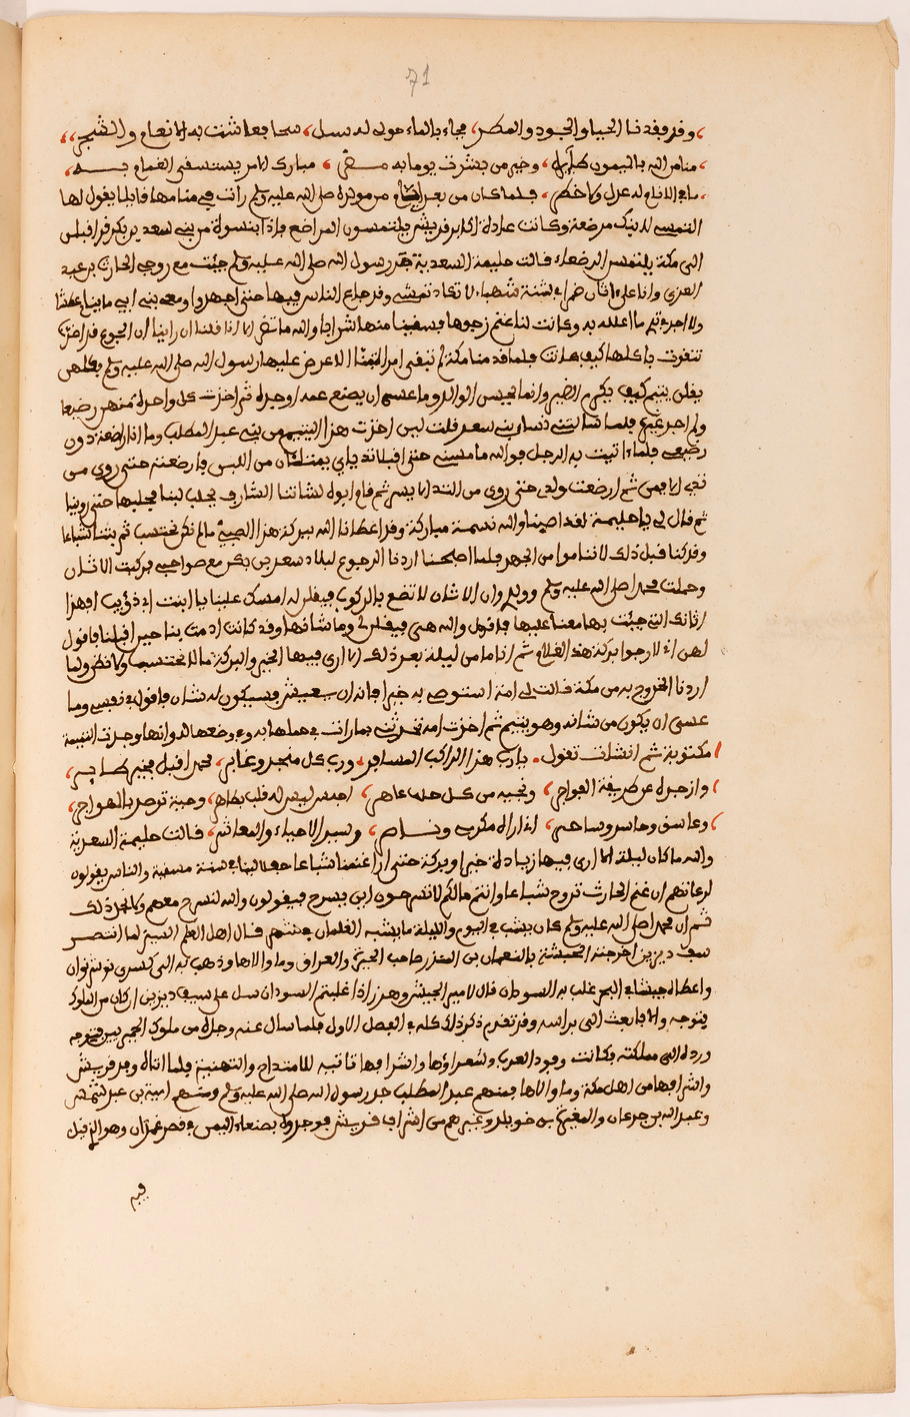 71
وقد فقدنا الحيا والجود والمطر، فجاء بالماء جوني له سبل، سحا فعاشت به الانعام والشجر،،
منا من الله بالميمون طائره، وخير من بشرت يوما به مضر، مبارك الامر يستسقى الغمام به،
ما في الانام له عدل ولا خطر، فلما كان من بعد ايام من مولده صلى الله عليه وسلم رأت في منامها قايلا يقول لها
التمسي لابنك مرضعة وكانت عادة اكابر قريش يلتمسون المراضع فاذا بنسوة من بني سعد بن بكر قد اقبلن
الى مكة يلتمسن الرضعاء قالت حليمة السعدية رسول الله صلى الله عليه وسلم جئت مع زوجي الحارث بن عبد
العزى وانا على اتان قمراء في سنة شهباء لا تكاد تمشي وقد جاع الناس فيها حتى اجهدوا ومعي بني ابي ما ينام عطشا
ولا اجد في ما اعلله به وكانت لنا غنم نرجوها فسقينا منها شرابا والله ما تقر
فلما قدمنا مكة لم تبقى امراة منا الا عرض عليها رسول الله صلى الله عليه وسلم فكلهن
يقلن يتيم كيف يكرم الظير وانما المحسن الوالد وما عسى ان يصنع عمه او جده ثم اخذت كل واحدة منهن رضيعا
ولم اجد غيره فلما نساء بني سعد قلت لين اخذت هذا اليتيم من بني عبد المطلب وما انا راجعة دون
رضيع فلما اتيت به الرحل فوالله ما مسيت حتى اقبلا ثدياي يمتلئان من اللبن فارضعته حتى روي من
ثم ارضعت ولدي حتى روي من الثدي الايسر ثم قام ابوه لشاتنا الشارف يحلب لبنا فحلبها حتى روينا
ثم قال لي يا حليمة لقد اصبنا والله نسمة مباركة وقد اعطانا الله ببركة هذا الصبي ما لم نكن نحتسب ثم بتنا شباعا
وقد كنا قبل ذلك لا نناموا من الجهد فلما اصبحنا اردنا الرجوع لبلاد سعد بن بكر مع صواحبي فركبت الاتان
وحملت محمدا صلى الله عليه وسلم وولدي وان الاتان لا تقع بالركوب فيقلن له امسك علينا يا ابنت ابي ذؤيب افهذا
اتانك التي جئت بها معنا عليها فاقول والله هي فيقلن لي وما شانها وقد كانت ادمت بنا حين اقبلنا فاقول
لهن اني لارجوا بركة هذا الغلام ثم انا ما من ليلة بعد ذلك الا ارى فيها الخير والبركة مالا نحتسب ولا نظن ولما
اردنا الخروج به من مكة قالت لي امه استوصي به خيرا فانه ان يعيش فسيكون له شان فاقول في نفسي وما
عسى ان يكون من شانه وهو يتيم ثم اخذت امه تحدثني بما رات في حملها به وفي وضعها
مكتوبة ثم انشات تقول. يا رب هذا الراكب المسافر، ورب كل منجد وغاير، محمدا اقبل بخير طاير،
وازجره عن طريقة الفواجر، ونجيه من كل حليمة عاهر، احمق ليس له قلب طاهر، وحية ترصد بالهواجر،
وغاسق وحاسد وساهر، اني اراه مكرمي وناصر، وسيد الاحياء والمعاشر، قالت حليمة السعدية
والله ما كان ليلة الا ارى فيها زيادة خيرا وبركة حتى ان اغنمنا شباعا حفالا لبنا في سنة مسغبة والناس يقولون
لرعاتهم ان غنم الحارث تروح شباعا وانتم مالكم لا تسرحون اين يسرح فيقولون والله لنسرح معهم ولا نجد ذلك
ثم ان محمدا صلى الله عليه وسلم كان يشب في اليوم والليلة ما يشبه الغلمان في شهر قال اهل العلم السير لما انتصر
سيف ذي يزن اخرجته الحبشة بالنعمان بن المنذر صاحب الحيرة والعراق وما والاها وذهب به الى كسرى نوشروان
واعطاه جيشا في البحر غلب به السودان قال لامير الجيش وهرز اذا غلبتم السودان سل على سيف ذي يزن ان كان من الملوك
يتوجه والا فابعث الي براسه وقد تقدم ذكر ذلك كله في الفصل الاول فلما سال عنه وجده من ملوك الحمير يين فتوجه
ورده الى مملكته فكانت وفود العرب وشعراؤها واشرافها تاتيه للامتداح والتهنية فلما اتاه وفد قريش
واشرافها من اهل مكة وما والاها فمنهم عبد المطلب جد رسول الله صلى الله عليه وسلم ومنهم امية بن عبد شمس
وعبد الله بن جدعان والمغيرة بن خويلد وغيرهم من اشراف قريش فوجدوه بصنعاء اليمن في قصر غمدان وهو الذي قيل
فيه